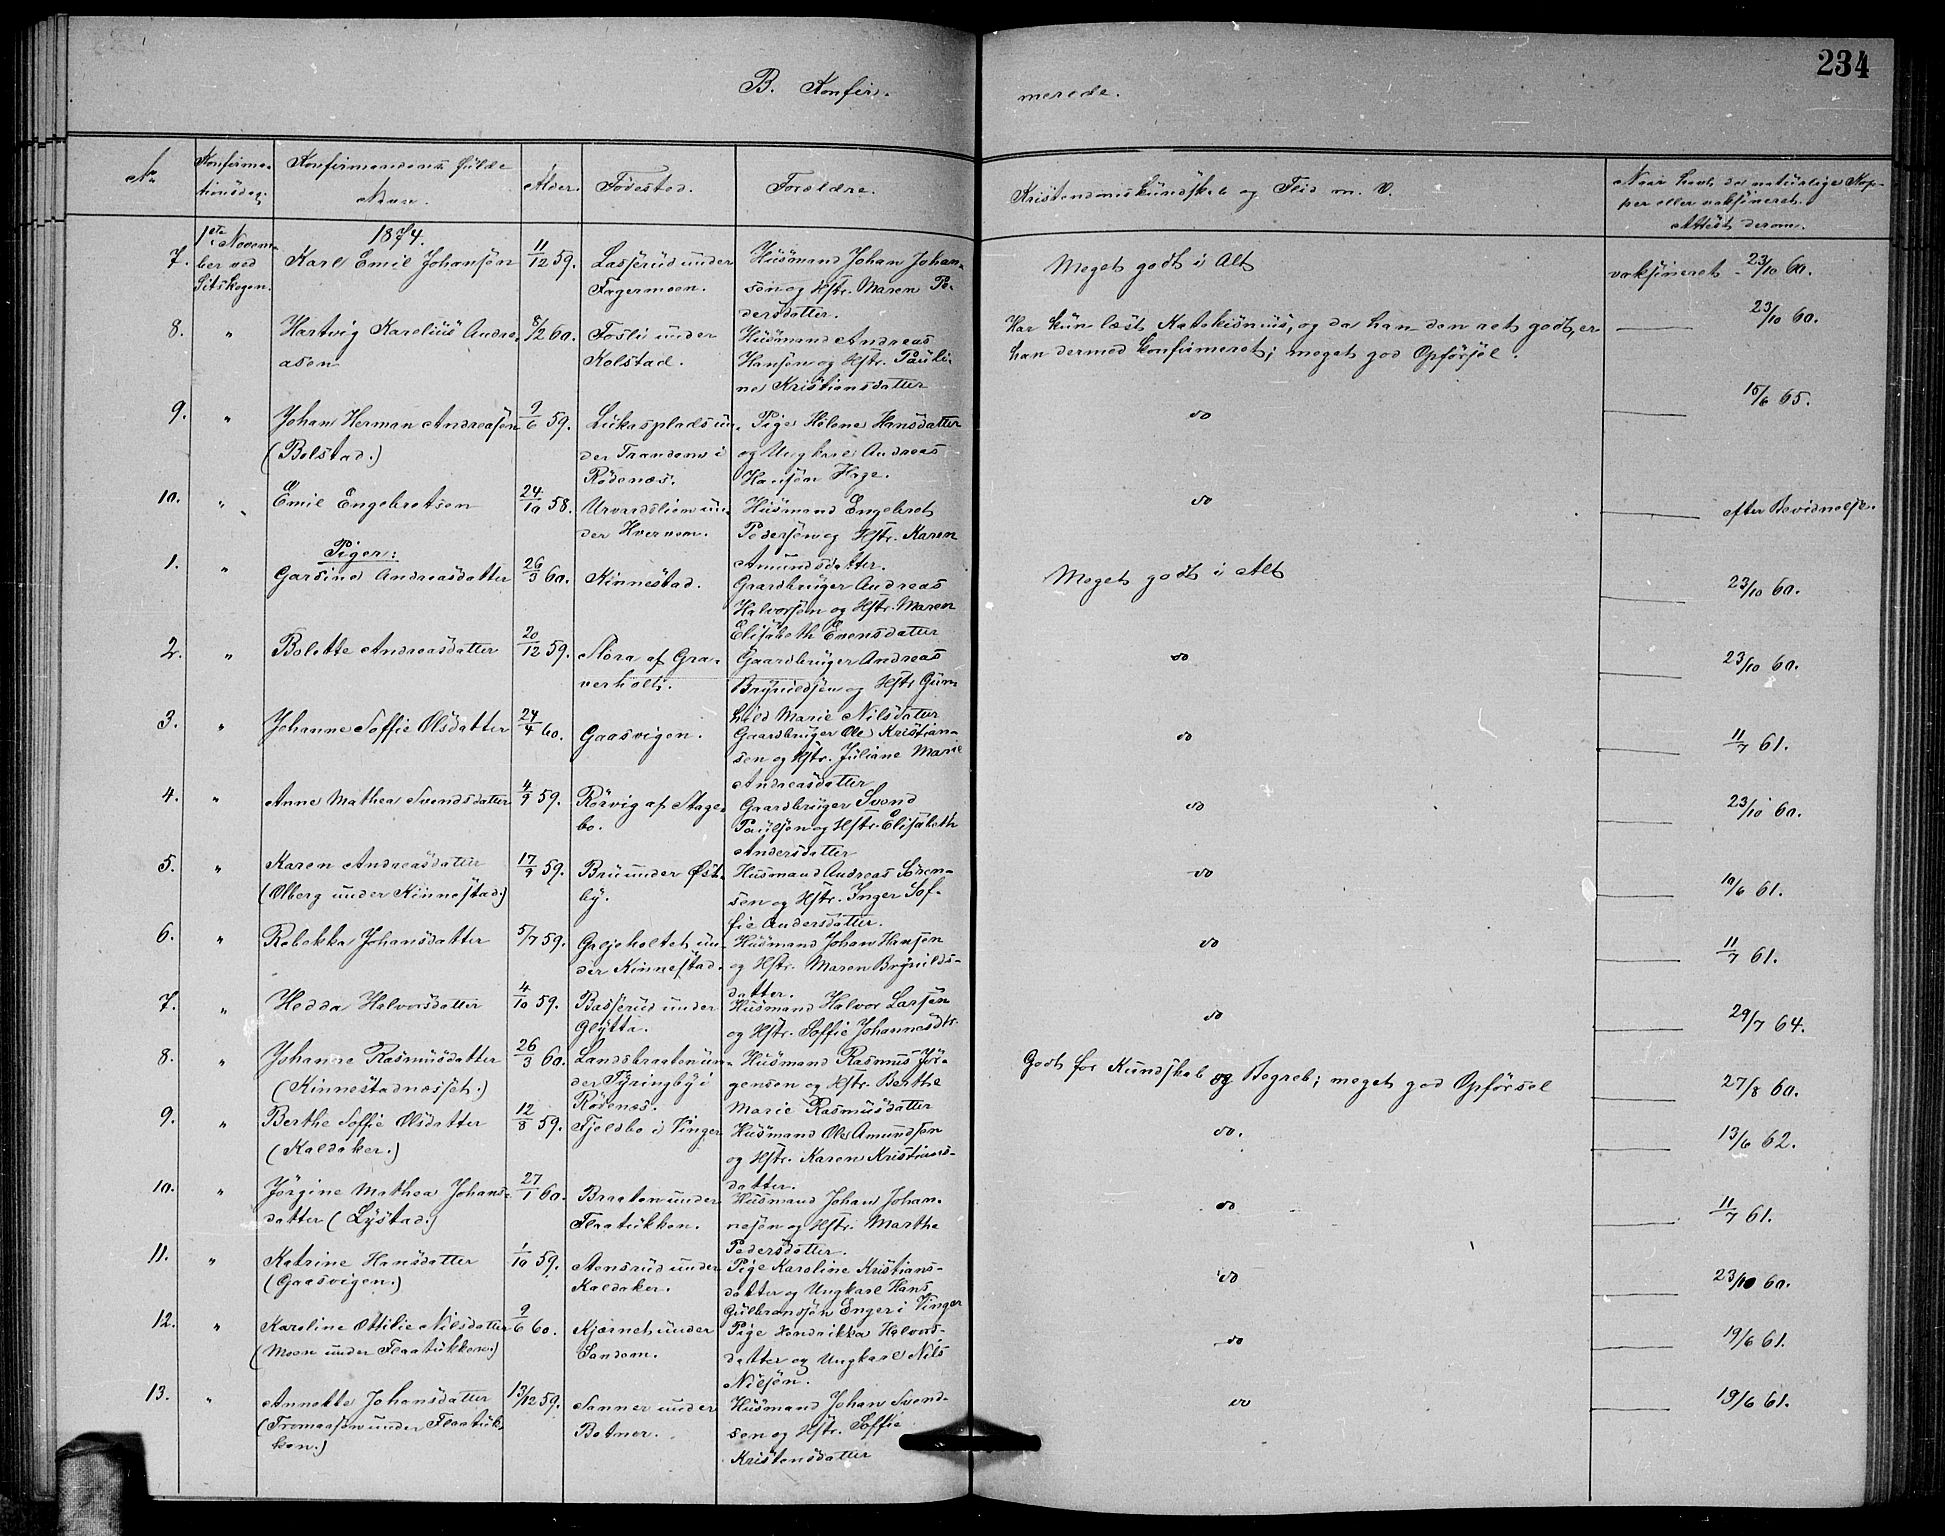 234
B. Konfir-
merede.
No
Konfirma-
tionsdag.
Konfirmandens fulde
Navn.
Alder.
Födested.
Forældre.
Kristendomskundskab og Flid m. V.
Naar havt de naturlige Kop-
per eller vaksineret.
Attest derom.
1ste Novem-
ber ved
Setskogen.
1874.
7. Karl Emil Johansen 11/12 59. Lasserud under
Fagermoen.
Husmand Johan Johan-
sen og Hstr. Maren Pe-
dersdatter.
Meget godt i Alt
vaksineret - 23/10 60.
8. " Hartvig Karelius Andre-
asen
8/2 60. Fosli under
Kolstad.
Husmand Andreas
Hansen og Hstr. Pauli-
ne Kristiansdatter
Har kun læst Katekismus, og da han kan det godt, er
han dermed konfirmeret; meget god Opförsel.
23/10 60.
9. " Johan Herman Andreasen
(Bolstad.)
9/6 59. Lukasplads un-
der Trandem i
Rödenæs.
Pige Helene Hansdatter
og Ungkarl Andreas
Hansen Hage.
do
15/6 65.
10. " Emil Engebretsen 24/10 58. Urvardslien un-
der Hvernem.
Husmand Engebret
Pedersen og Hstr. Karen
Amundsdatter.
do
efter Bevidnelse.
Piger:
1. " Garsine Andreasdatter 26/3 60. Kinnestad.
Gaardbruger Andreas
Halvorsen og Hstr. Maren
Elisabeth Evensdatter
Meget godt i Alt
23/10 60.
2. " Bolette Andreasdatter 20/12 59. Mora af Gra-
verholt.
Gaardbruger Andreas
Brynildsen og Hstr. Gun-
hild Marie Nilsdatter
do
23/10 60.
3. " Johanne Soffie Olsdatter 24/4 60. Gaasvigen.
Gaardbruger Ole Kristian-
sen og Hstr. Juliane Marie
Andreasdatter
do
11/7 61.
4. " Anne Mathea Svendsdatter 4/9 59. Rörvig af Hage-
bo.
Gaardbruger Svend
Paulsen og Hstr. Elisabeth
Andersdatter
do
23/10 60.
5. " Karen Andreasdatter
(Olberg under Kinnestad.)
17/9 59. Bru under Öst-
by.
Husmand Andreas Sören-
sen og Hstr. Inger Sof-
fie Andersdatter.
do
10/6 61.
6. " Rebekka Johansdatter 5/7 59. Galjeholtet un-
der Kinnestad.
Husmand Johan Hansen
og Hstr. Maren Brynilds-
datter.
do
11/7 61.
7. " Hedda Halvorsdatter 4/10 59. Basserud under
Glytta.
Husmand Halvor Larsen
og Hstr. Soffie Johannesdtr.
do
29/7 64.
8. " Johanne Rasmusdatter
(Kinnestadnæsset.)
26/3 60. Landsbraaten un-
der Tyringby i
Rödenæs.
Husmand Rasmus Jör-
gensen og Hstr. Berthe
Marie Rasmusdatter
Godt for Kundskab og Begreb; meget god Opförsel
27/8 60.
9. " Berthe Soffie Olsdatter
(Kaldaker.)
12/8 59. Fjeldbo i Vinger
Husmand Ole Amundsen
og Hstr. Karen Kristians-
datter.
do.
13/6 62.
10. " Jörgine Mathea Johans-
datter (Lystad.)
27/1 60. Braaten under
Flaatukken.
Husmand Johan Johan-
nesen og Hstr. Marthe
Pedersdatter.
do
11/7 61.
11. " Katrine Hansdatter
(Gaasvigen.)
1/10 59. Aensrud under
Kaldaker.
Pige Karoline Kristians-
datter og Ungkarl Hans
Gulbrandsen Enger i Vinger
do
23/10 60.
12. " Karoline Ottilie Nilsdatter
(Moen under Flaatukken.)
9/6 60. Kjærnet under
Sandem.
Pige Hendrikka Halvors-
datter og Ungkarl Nils
Nilsen.
do
19/6 61.
13. " Annette Johansdatter
(Tromaasen under Flaatuk-
ken.)
13/12 59. Sanner under
Botner.
Husmand Johan Svend-
sen og Hstr. Soffie
Kristensdatter
do
19/6 61.